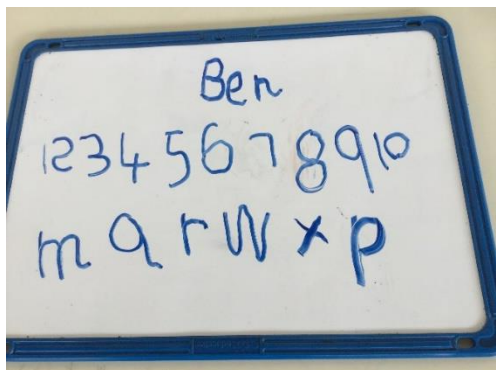 Ben
12345678910
m a r w x p